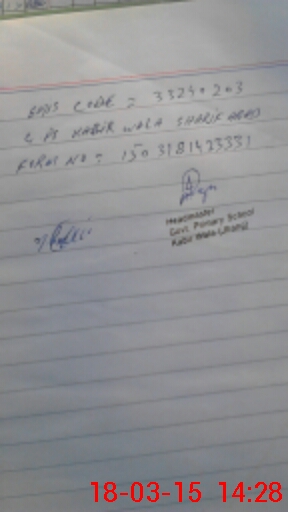 EMIS CODE = 33240203
G PS KABIR WALA SHARIF ABAD
FORM NO = 1503181433331
Headmaster
Govt. Primary School
Kabir Wala (Jhang)
18-03-15 14:28